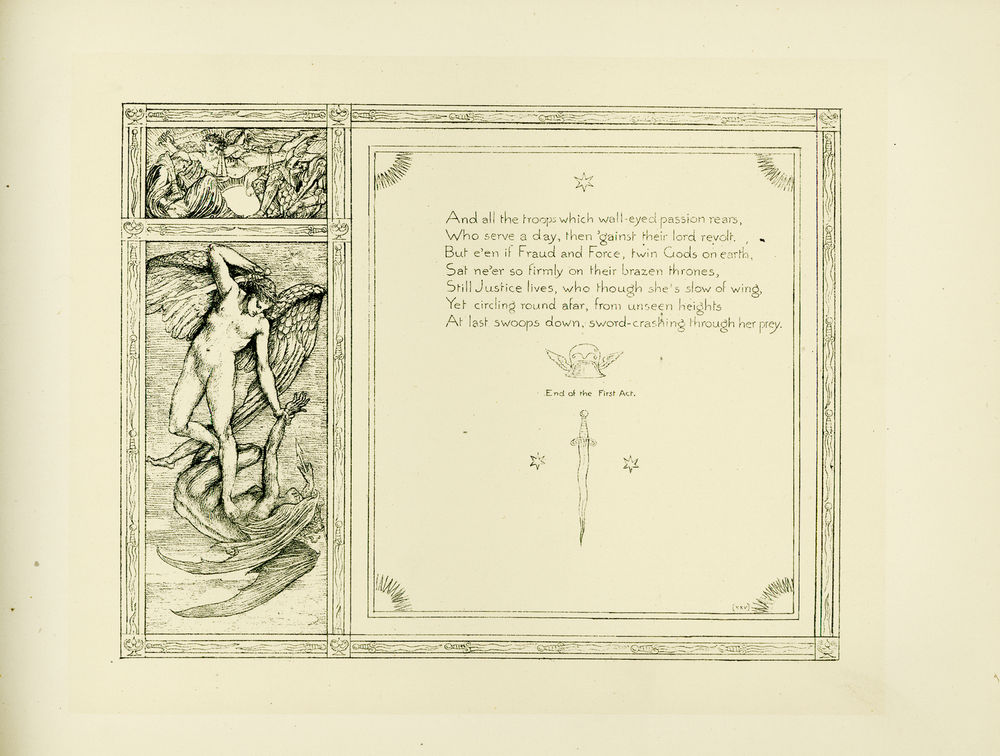 And all the troops which wall-eyed passion rears,
Who serve a day, then 'gainst their lord revolt.
But e'en if Fraud and Force, twin Gods on earth,
Sat ne'er so firmly on their brazen thrones,
Still Justice lives, who though she's slow of wing,
Yet circling round afar, from unseen heights
At last swoops down, sword-crashing through her prey.
End of the First Act.
(xxv)